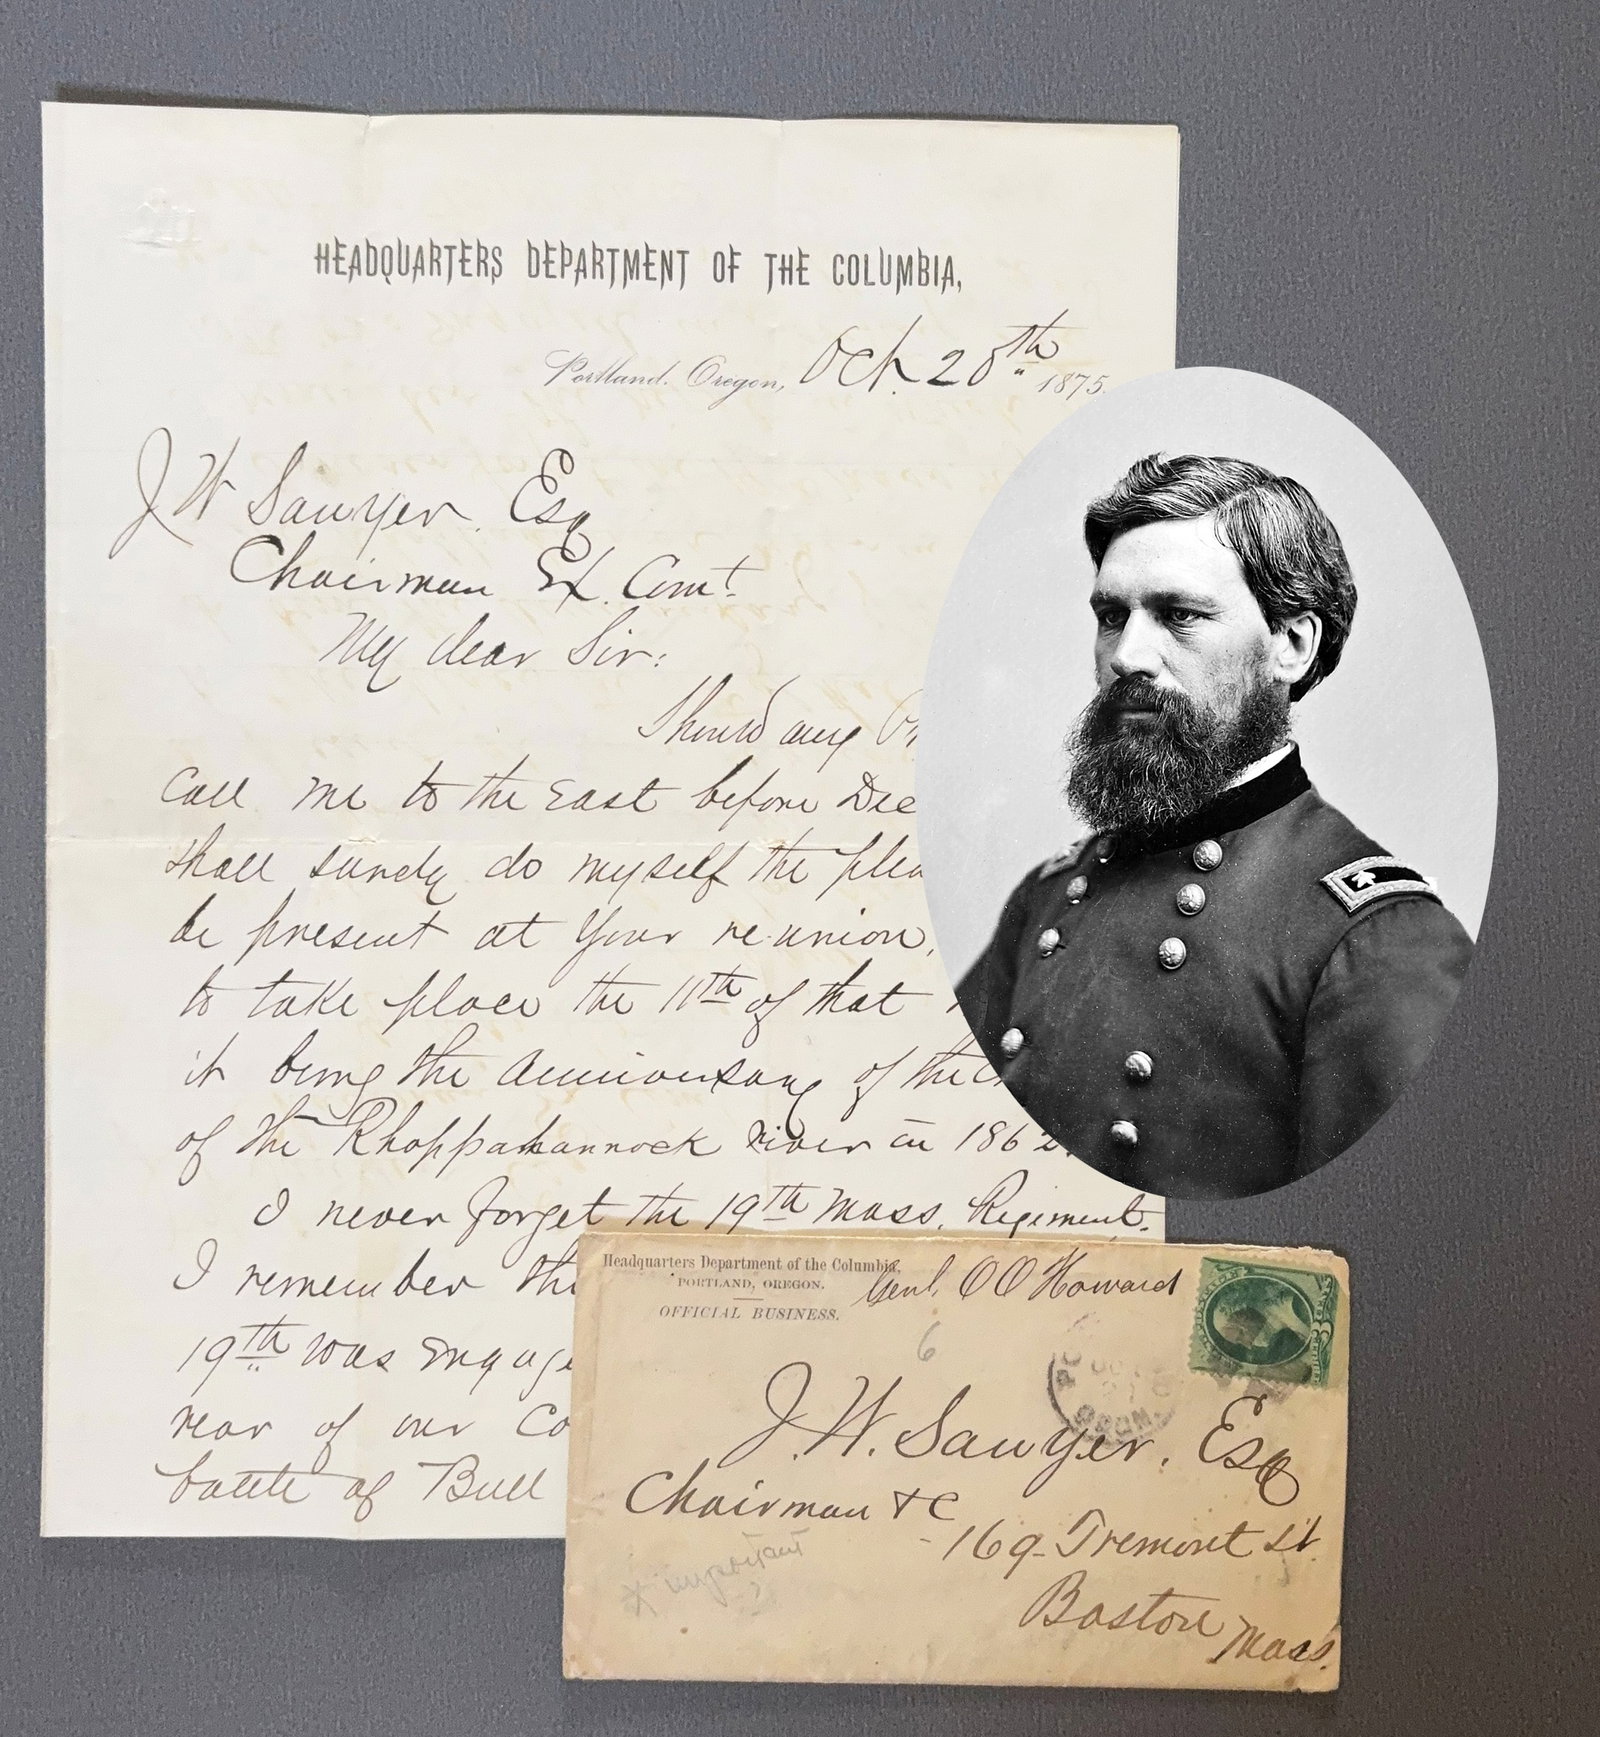 HEADQUARTERS DEPARTMENT OF THE COLUMBIA,
Portland, Oregon, Oct. 20th 1875.
J W Sawyer. Esq
Chairman Ex. Comt.
My dear Sir:
Should any
Call me to the East before Dec
shall surely do myself the plea
be present at your re-union,
to take place the 11th of that
it being the anniversary of the
of the Rhappahannock river in 1862.
I never forget the 19th Mass. Regiment.
I remember the
19th was engage
rear of our Co
battle of Bull
Headquarters Department of the Columbia,
PORTLAND, OREGON.
OFFICIAL BUSINESS.
Genl. O O Howard
6
J. W. Sawyer. Esq
Chairman &c
169 Tremont St
Boston
Mass.
important
?